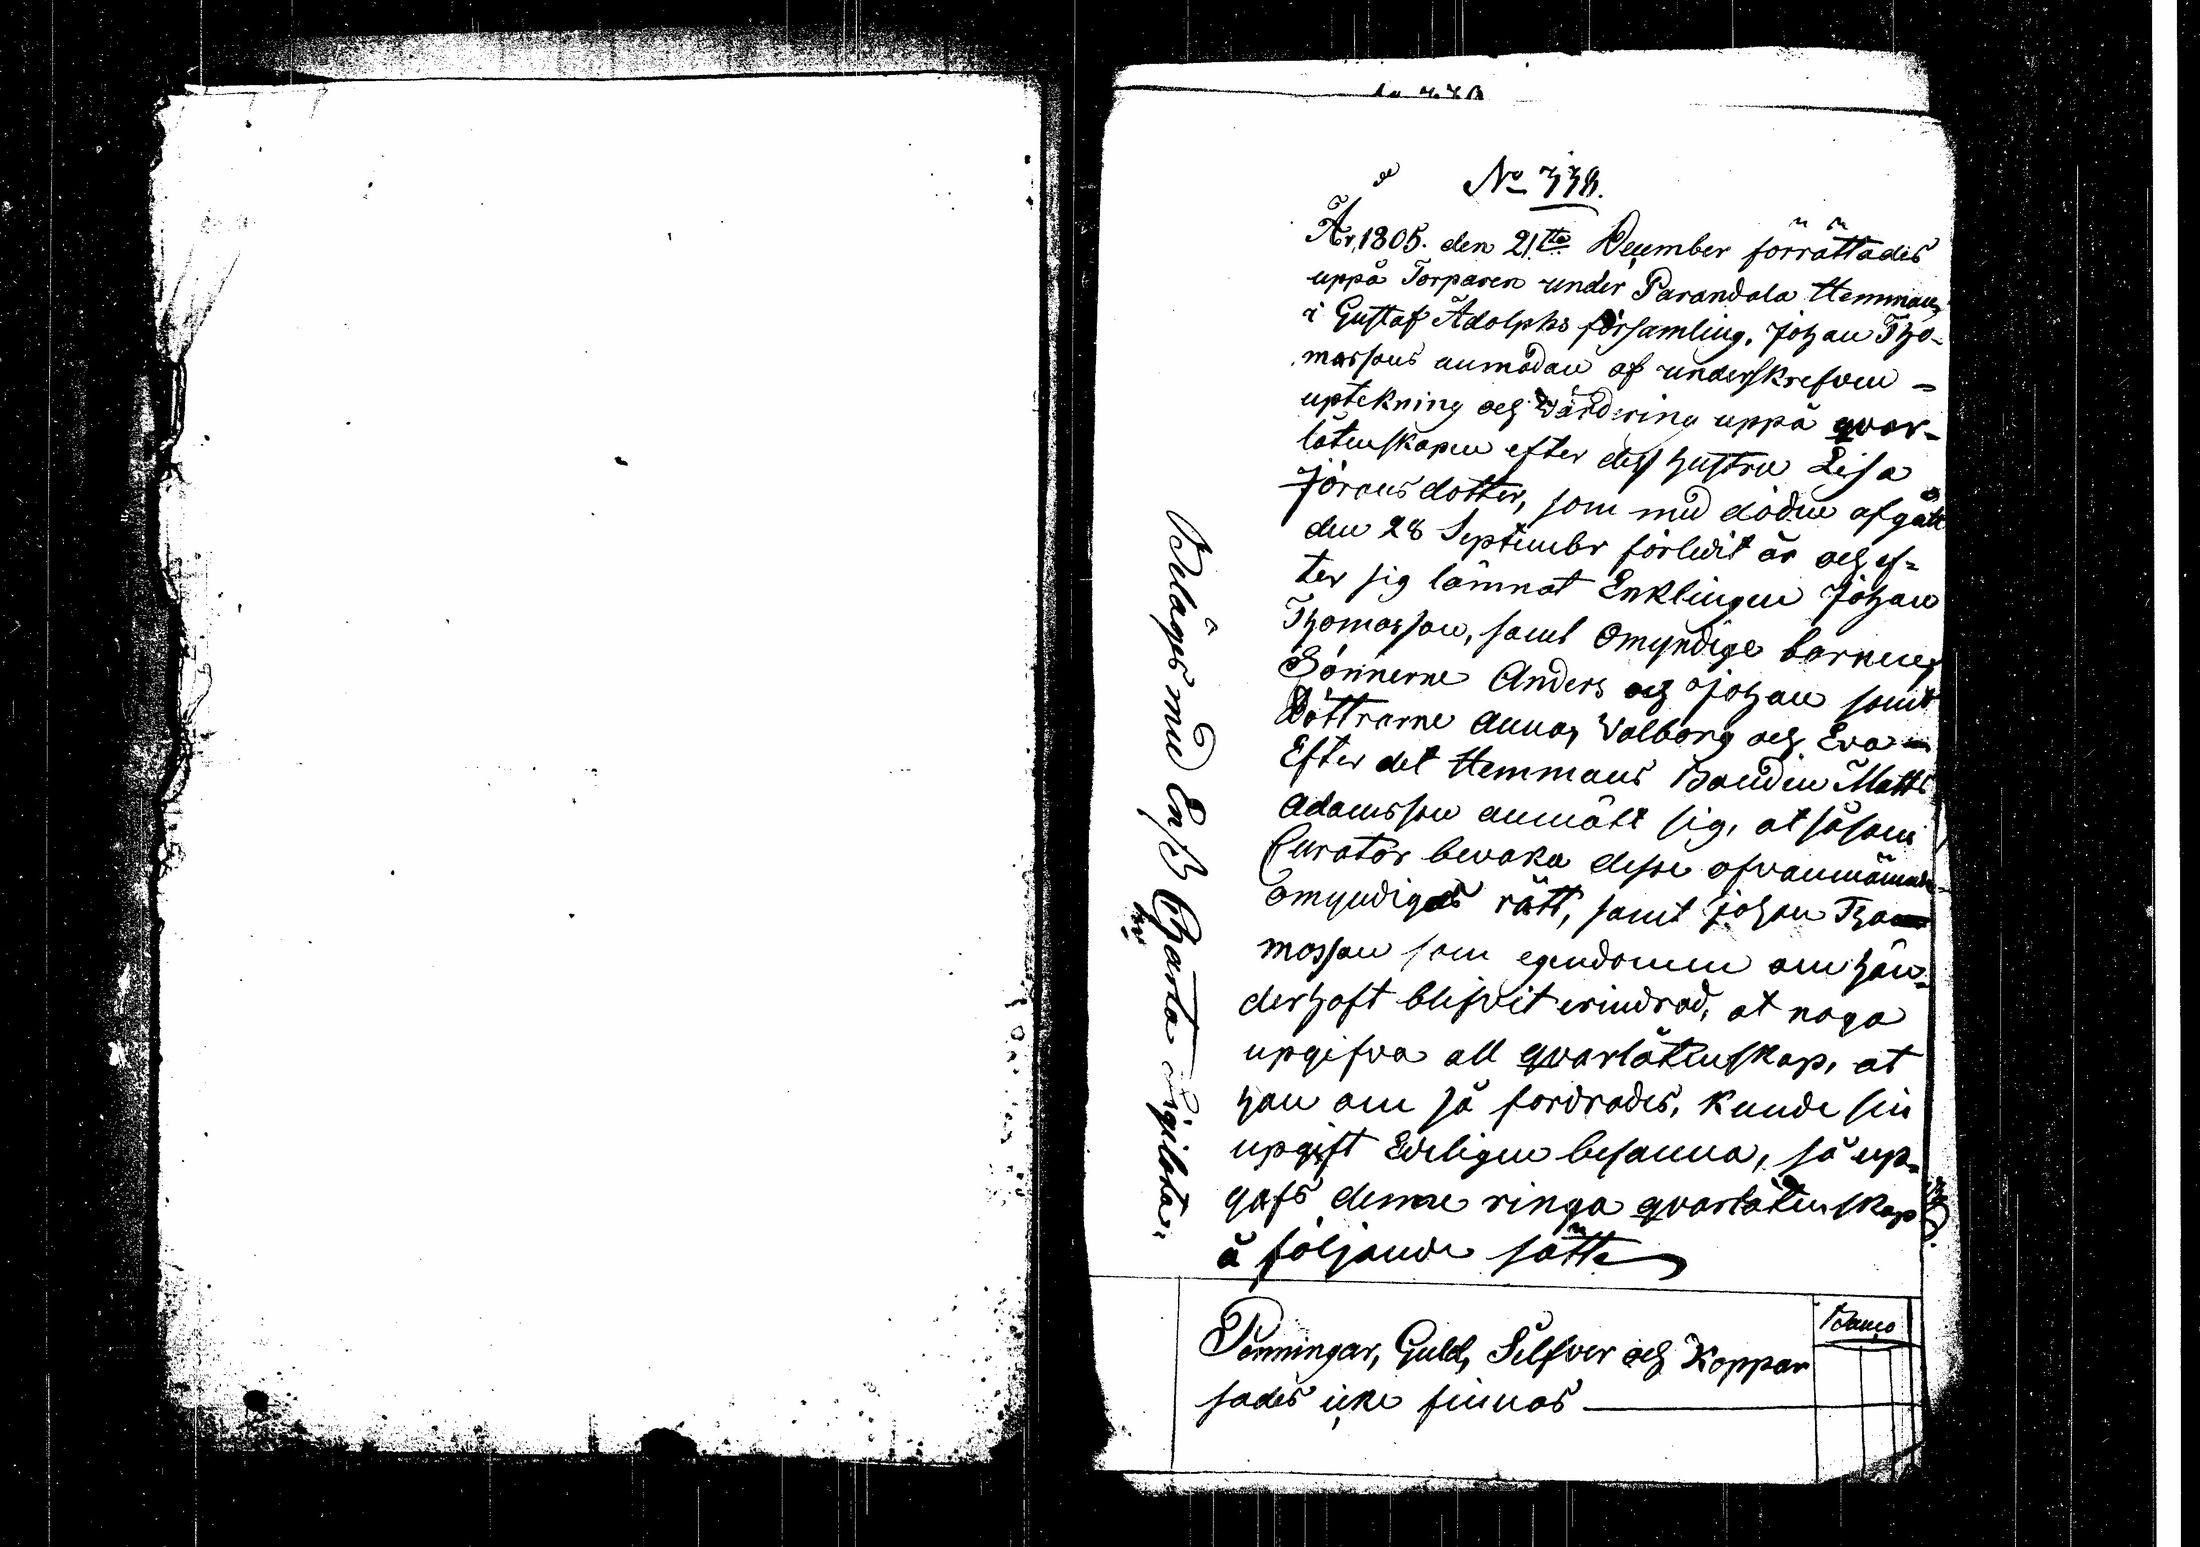 No 339.
År, 1805. den 21.te December förrättades
uppå Torparen under Parandala Hemman,
i Gustaf Adolphs församling, Johan Tho-
massons anmodan af underskrefven -
uptekning och Värdering uppå qvar-
låtenskapen efter dess hustru Lisa
Jöransdotter, som med döden afgått
den 28 Septembr förledit år och ef-
ter sig lämnat Enklingen Johan
Thomasson, samt Omyndige barnen,
Sönnerne Anders och Johan samt
Döttrarne Anna, Valborg och Eva -
Efter det Hemmans Bonden Matts
Adamsson anmält sig, at såsom
Curator bevaka desse ofvannämnde
omyndigas rätt, samt Johan Tho
masson som egendomen om hän-
derhaft blifvit erindrad, at noga
upgifva all qvarlåtenskap, at
han om så fordrades, kunde sin
upgift Edeligen besanna, så up-
gafs denne ringa qvarlåtenskap
å följande sätt
Belägges med En ß Charta Sigilata.
Banco
Penningar, Guld, Silfver och Koppar
sades icke finnas